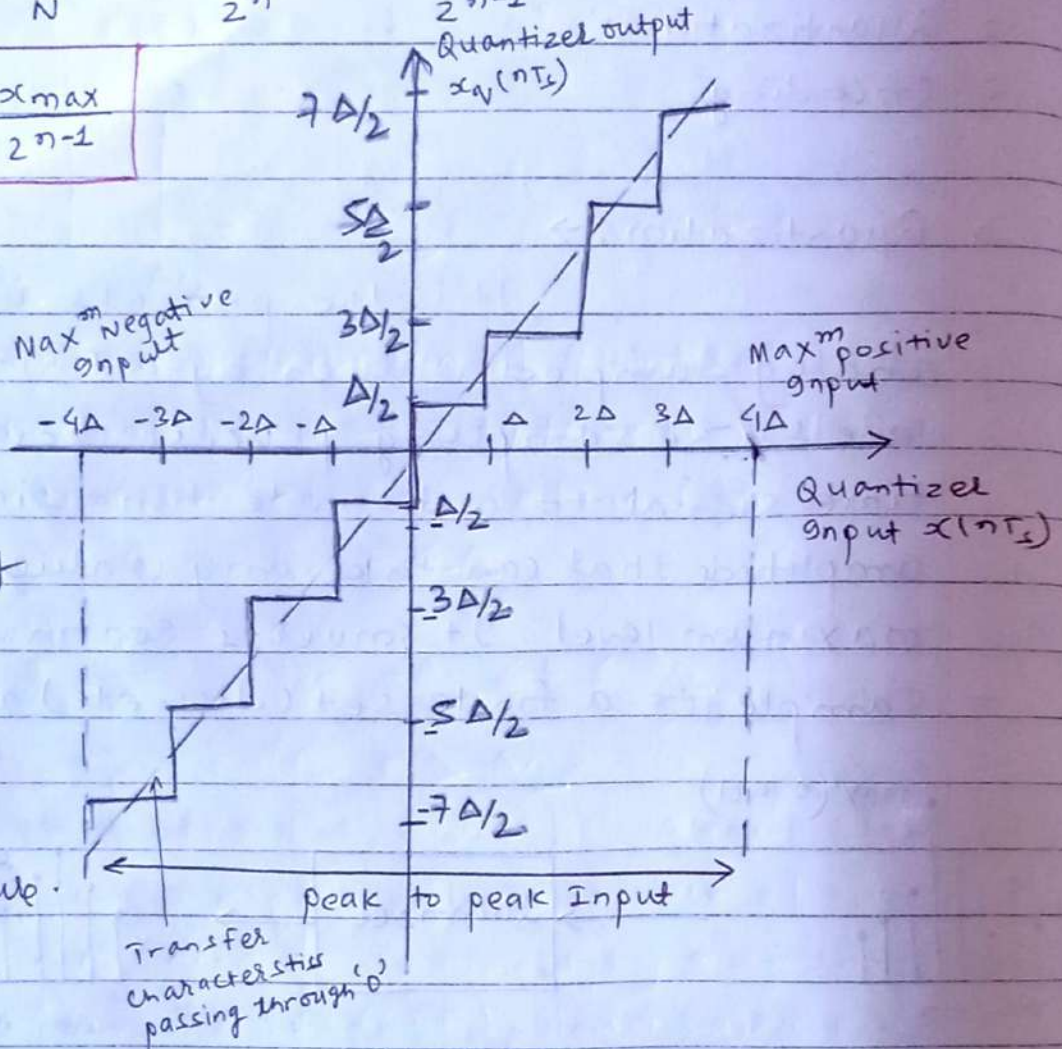 N 2^n 2^n-1
xmax
2^n-1
Quantizer output
xq(nTs)
7Δ/2
5Δ/2
3Δ/2
Δ/2
Max^m Negative
Input
Max^m positive
Input
-4Δ -3Δ -2Δ -Δ Δ 2Δ 3Δ 4Δ
Quantizer
Input x(nTs)
-Δ/2
-3Δ/2
-5Δ/2
-7Δ/2
peak to peak Input
Transfer
characterstiss
passing through '0'